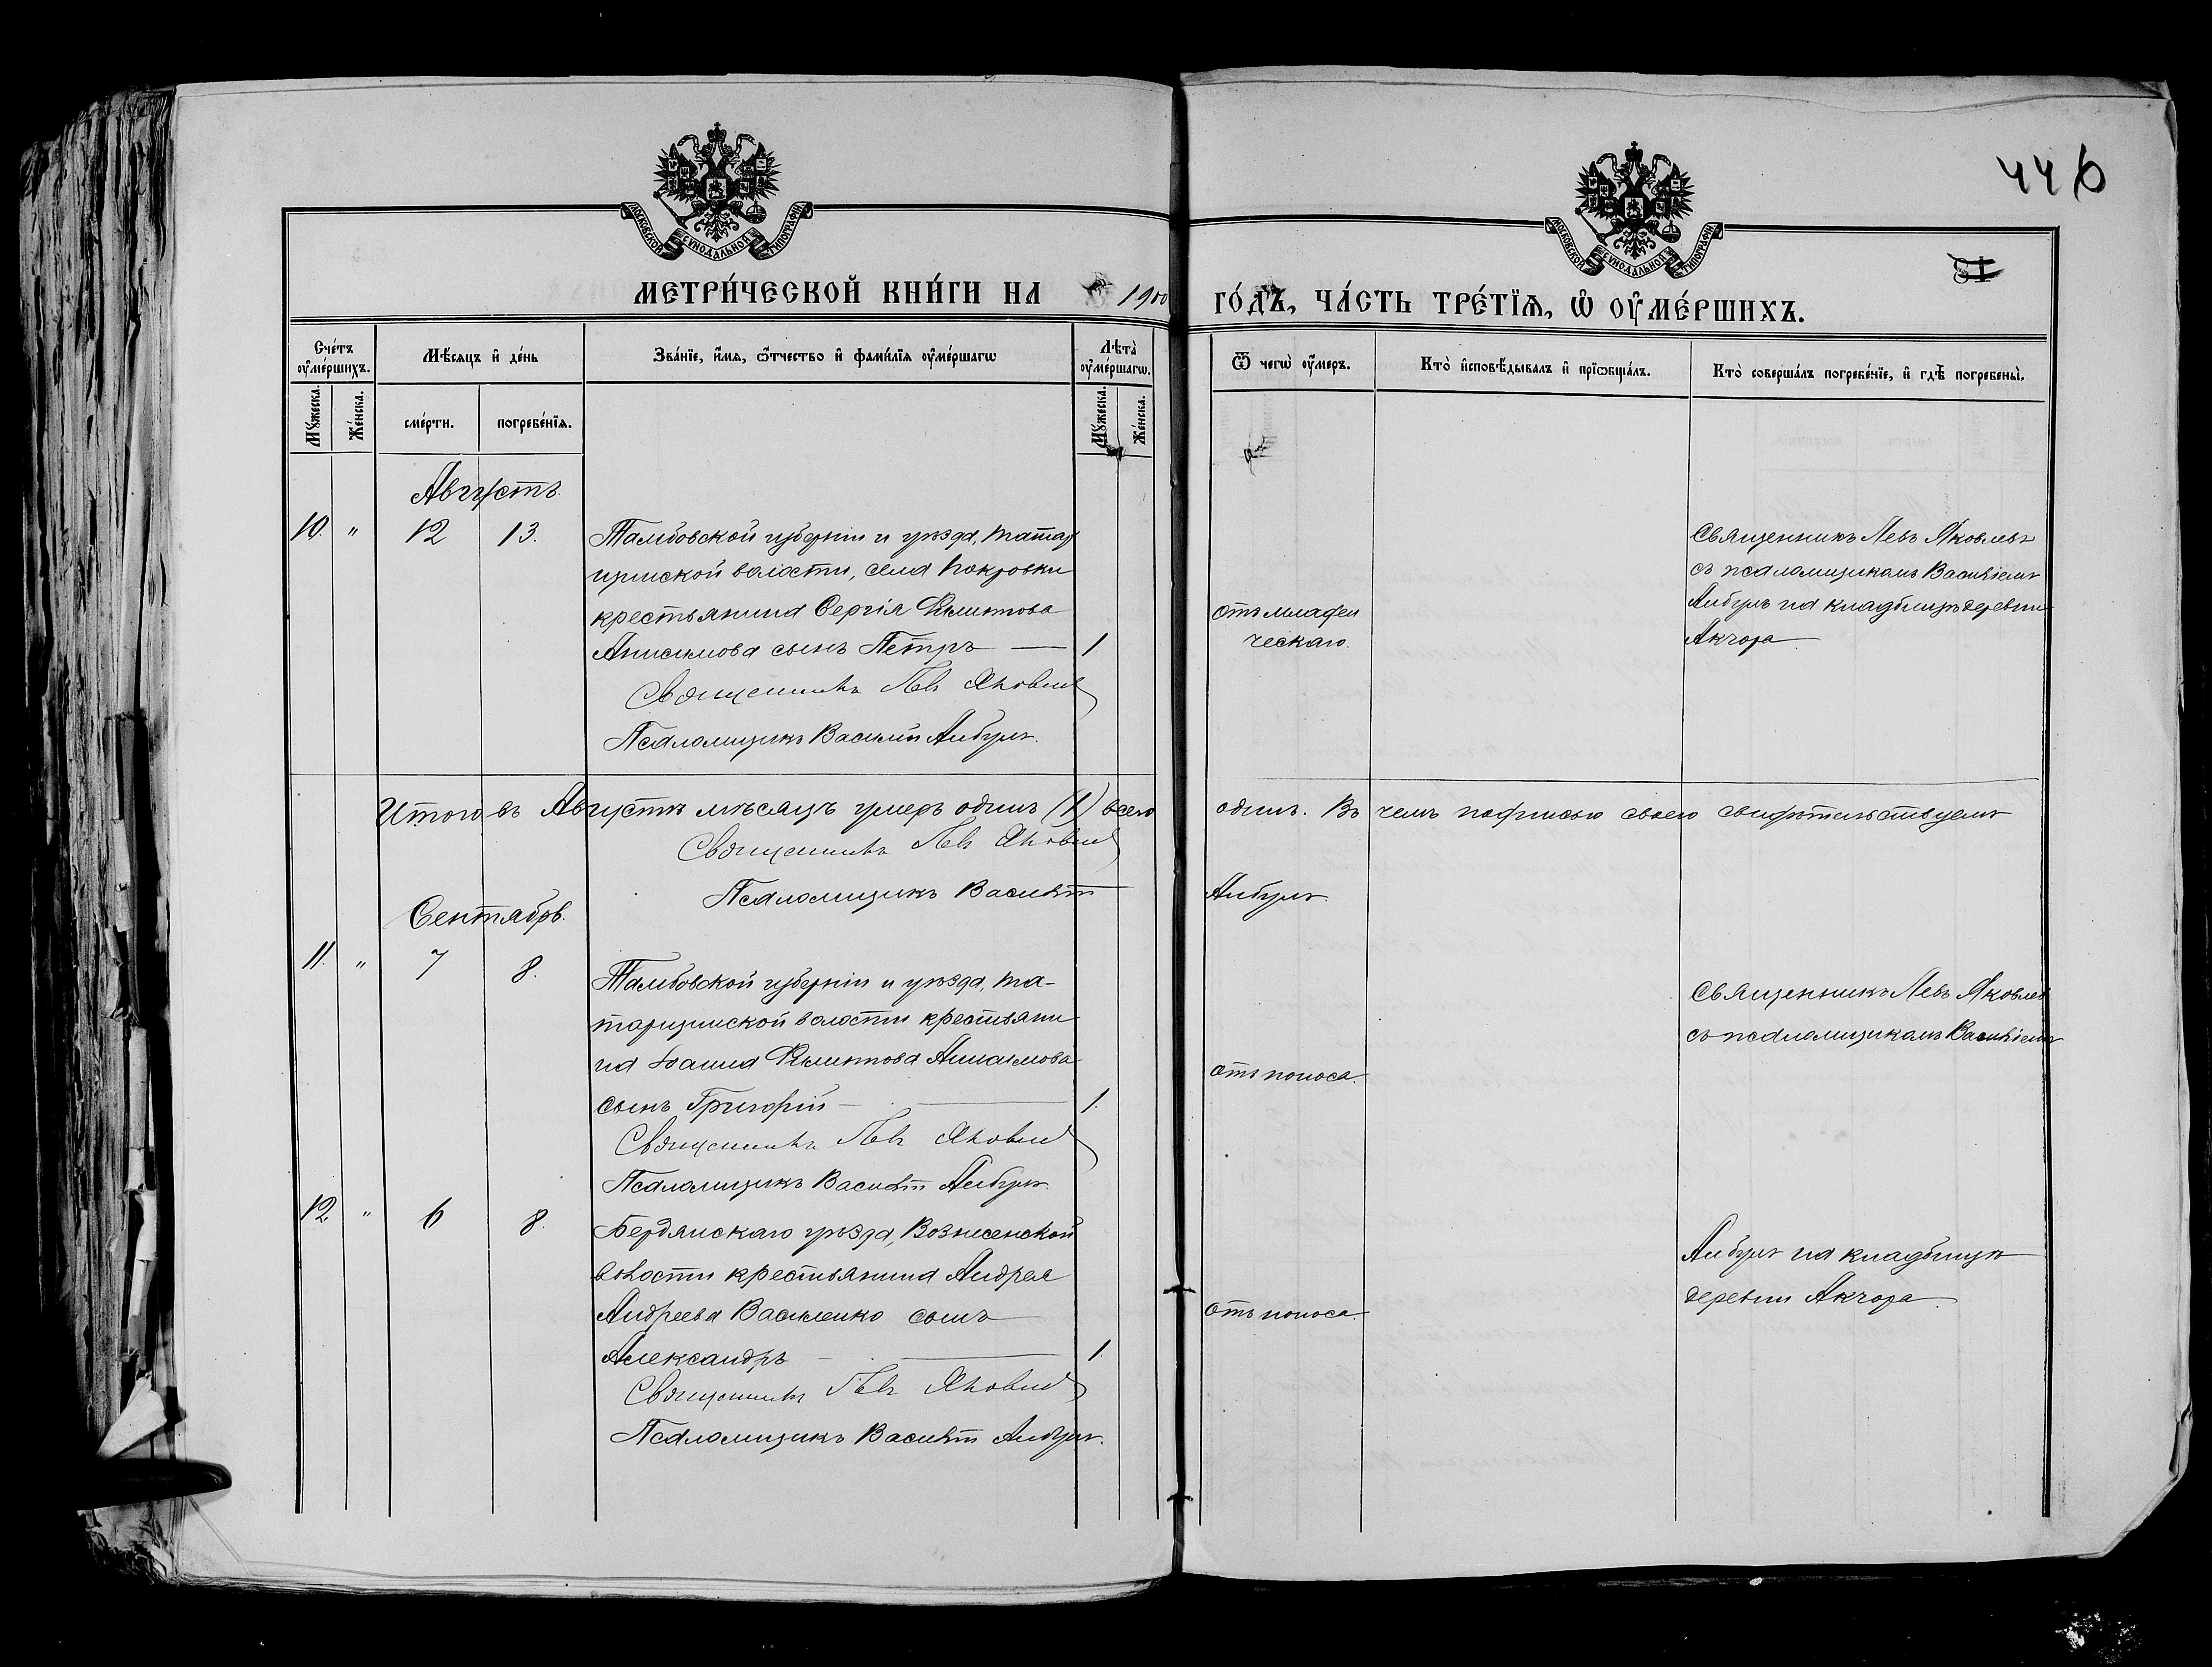 446
МОСКОВСКОЙ СѴНОДАЛЬНОЙ ТИПОГРАФІИ
МОСКОВСКОЙ СѴНОДАЛЬНОЙ ТИПОГРАФІИ
81
МЕТРИ́ЧЕСКОЙ КНИ́ГИ НА 1900 ГО́ДЪ, ЧА́СТЬ ТРЕ́ТЇѦ, Ѡ҆ ОУ҆МЕ́РШИХЪ.
Сче́тъ оу҆ме́ршихъ.
Мѣ́сѧцъ и҆ де́нь
Зва́нїе, и҆́мѧ, ѻ҆́тчество и҆ фами́лїѧ оу҆ме́ршагѡ
Лѣ́та оу҆ме́ршагѡ.
Ѿ чегѡ̀ оу҆́меръ.
Кто̀ и҆сповѣ́дывалъ и҆ прїѡбща́лъ.
Кто̀ соверша́лъ погребе́нїе, и҆ гдѣ̀ погребены̀.
Мꙋ́жеска. Же́нска.
сме́рти. погребе́нїѧ.
Мꙋ́жеска. Же́нска.
Августъ.
10. " 12 13. Тамбовской губерніи и уѣзда, Татар
щинской волости, села Покровки
крестьянина Сергія Филитова
Анисимова сынъ Петръ — 1
Священникъ Левъ Яковлевъ
Псаломщикъ Василій Анбулъ.
отъ младен
ческаго.
Священникъ Левъ Яковлевъ
съ псаломщикомъ Василіемъ
Анбулъ на кладбищѣ деревни
Акчора.
Итого въ Августѣ мѣсяцѣ умеръ одинъ (1) всего одинъ. Въ чемъ подписью своею свидѣтельствуемъ
Священникъ Левъ Яковлевъ
Псаломщикъ Василій Анбулъ.
Сентябрь.
11. " 7 8. Тамбовской губерніи и уѣзда, Та-
тарщинской волости крестьяни
на Іоанна Филитова Анисимова
сынъ Григорій — 1.
Священникъ Левъ Яковлевъ
Псаломщикъ Василій Анбулъ.
отъ поноса.
Священникъ Левъ Яковлевъ
съ псаломщикомъ Василіемъ
12 " 6 8. Бердянскаго уѣзда, Вознесенской
волости крестьянина Андрея
Андреева Василенко сынъ
Александръ — 1.
Священникъ Левъ Яковлевъ
Псаломщикъ Василій Анбулъ.
отъ поноса.
Анбулъ на кладбищѣ
деревни Акчора.